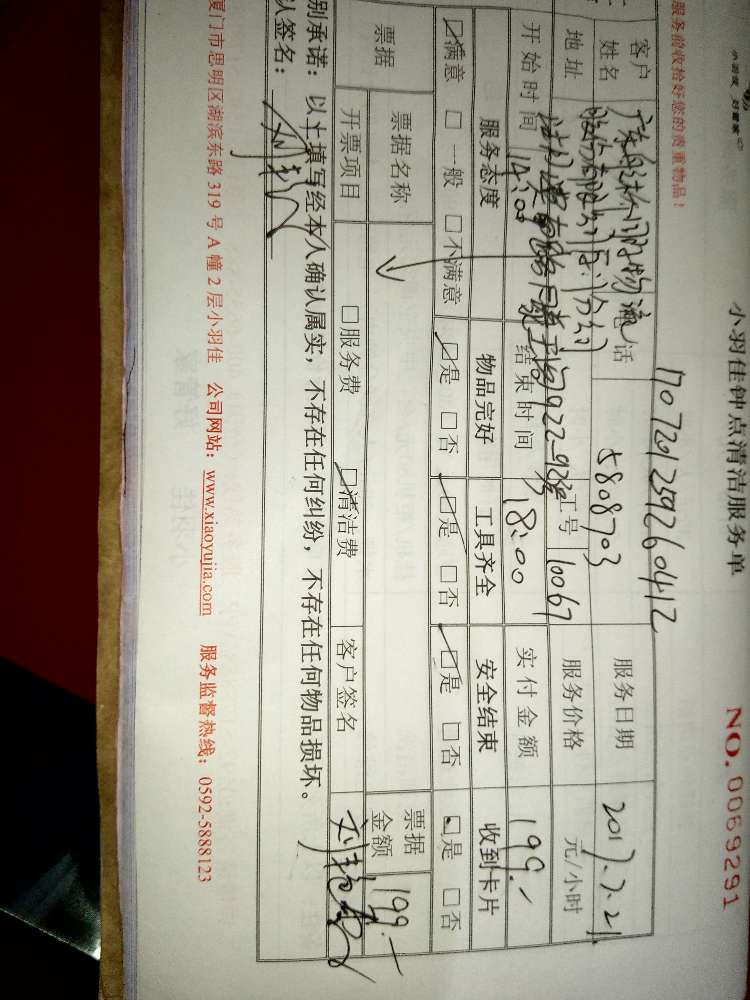 小羽佳 好管家
小羽佳钟点清洁服务单
NO. 0069291
服务前收拾好您的贵重物品！
1707201259260412
客户姓名 物流 电话 5808703 服务日期 2017.7.21.
地址 922-923 工号 10067 服务价格 元/小时
开始时间 14:00 结束时间 18:00 实付金额 199.-
服务态度 物品完好 工具齐全 安全结束 收到卡片
☑满意 □一般 □不满意 ☑是 □否 ☑是 □否 ☑是 □否 ☑是 □否
票据 票据名称 票据金额 199.-
开票项目 □服务费 ☑清洁费 客户签名
别承诺：以上填写经本人确认属实，不存在任何纠纷，不存在任何物品损坏。
认签名：
厦门市思明区湖滨东路 319 号 A 幢 2 层小羽佳 公司网站：www.xiaoyujia.com 服务监督热线：0592-5888123